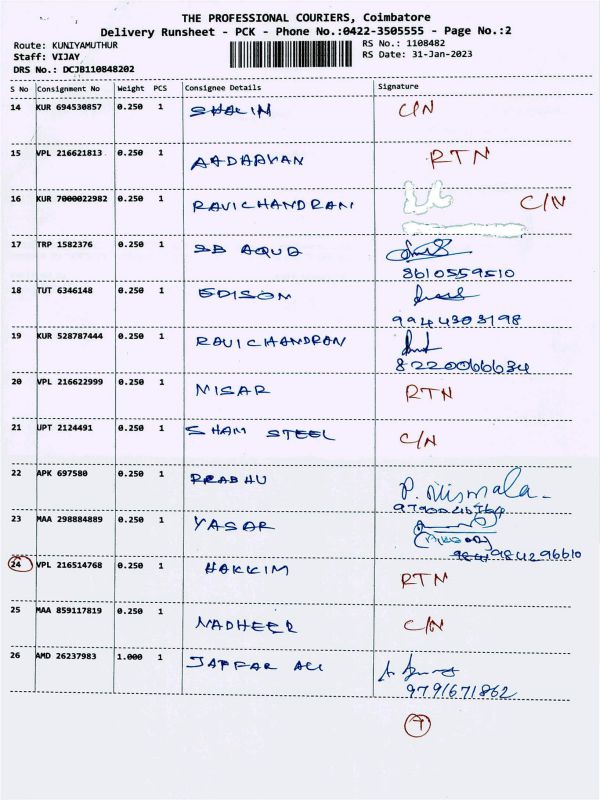 THE PROFESSIONAL COURIERS, Coimbatore
Delivery Runsheet - PCK - Phone No.:0422-3505555 - Page No.:2
Route: KUNIYAMUTHUR RS No.: 1108482
Staff: VIJAY RS Date: 31-Jan-2023
DRS No.: DCJB110848202
S No Consignment No Weight PCS Consignee Details Signature
14 KUR 694530857 0.250 1 SHALIN C/N
15 VPL 216621813 0.250 1 AADHAVAN RTN
16 KUR 7000022982 0.250 1 RAVICHANDRAN C/N
17 TRP 1582376 0.250 1 SB AQUA
8610559510
18 TUT 6346148 0.250 1 EDISON
9944303198
19 KUR 528787444 0.250 1 RAVICHANDRAN
8220066634
20 VPL 216622999 0.250 1 NISAR RTN
21 UPT 2124491 0.250 1 SHAM STEEL C/N
22 APK 697580 0.250 1 PRABHU P. Nirmala
23 MAA 298884889 0.250 1 YASAR
24 VPL 216514768 0.250 1 HAKKIM RTN
25 MAA 859117819 0.250 1 NADHEER C/N
26 AMD 26237983 1.000 1 JAFFAR ALI
9791671862
7